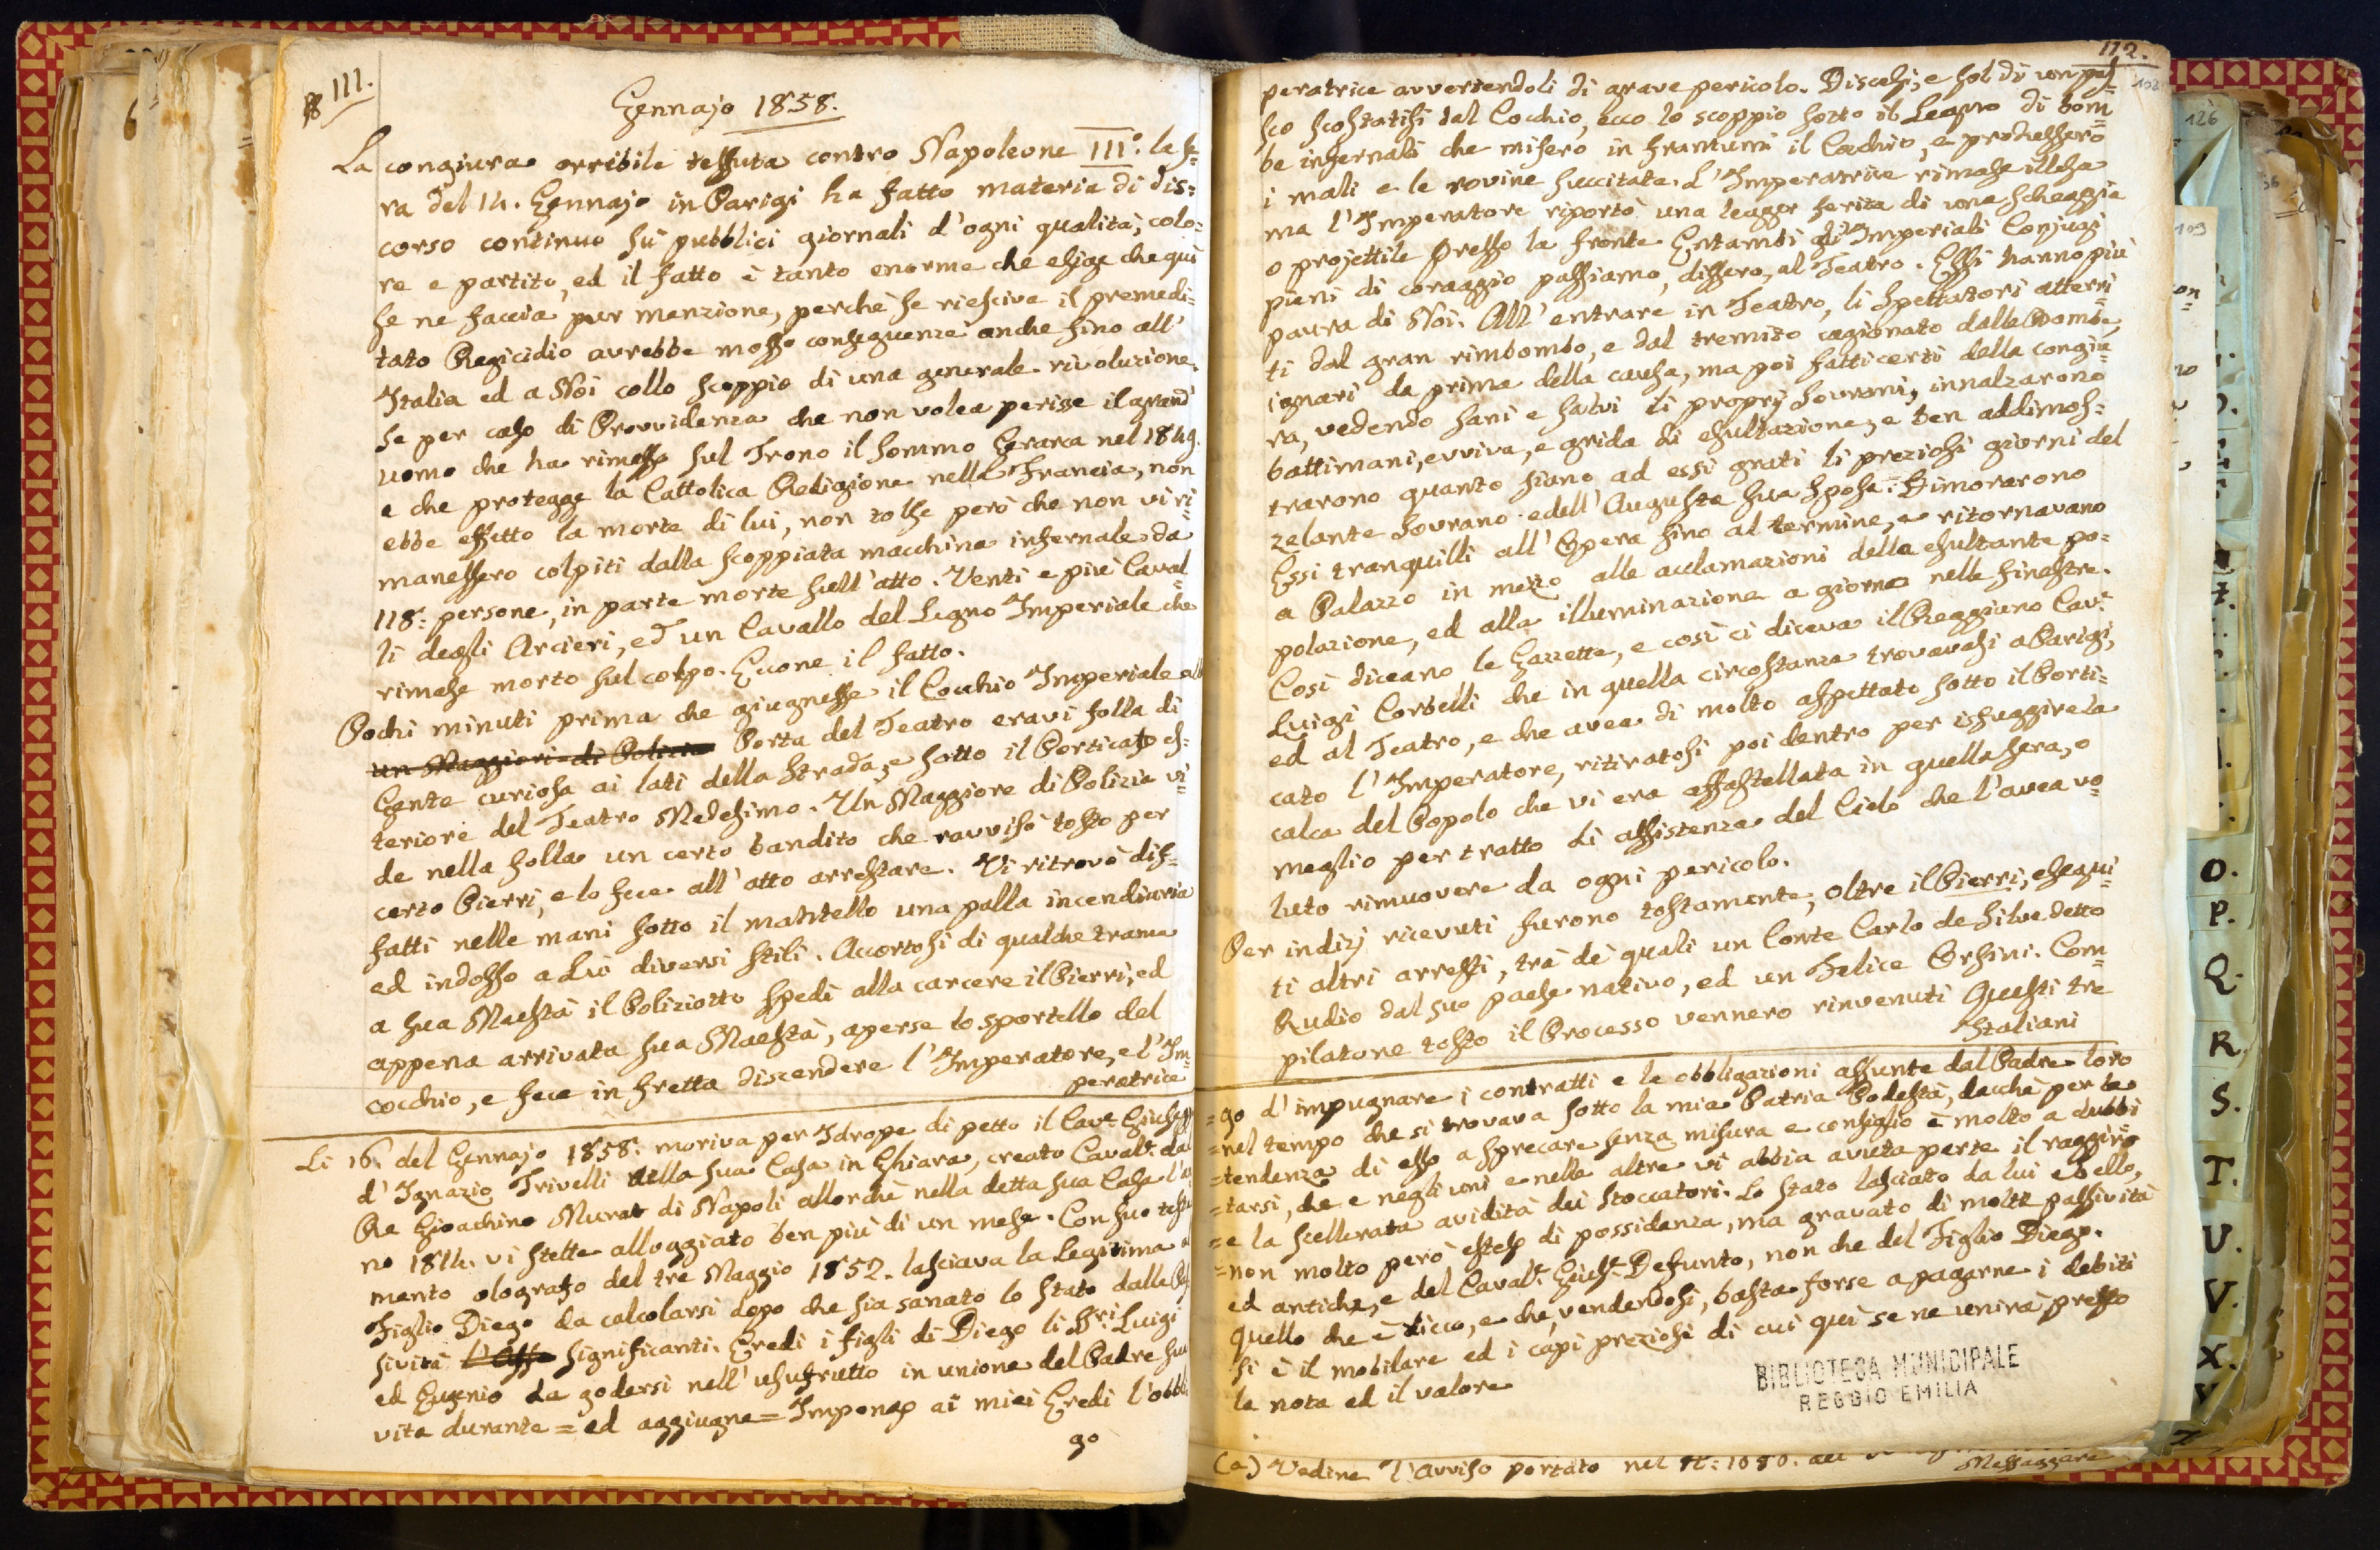 111.
Gennajo 1858.
La congiura orribile tessuta contro Napoleone III.º la se=
ra del 14. Gennajo in Parigi ha fatto materia di dis=
corso continuo su pubblici giornali d'ogni qualità, colo=
re e partito, ed il fatto è tanto enorme che esige che quì
se ne faccia pur menzione, perchè se riesciva il premedi=
tato Regicidio avrebbe mosso conseguenze anche fino all'
Italia ed a Noi collo scoppio di una generale rivoluzione.
Se per caso di Provvidenza che non volea perisse il grand'
uomo che ha rimesso sul Trono il Sommo Gerarca nel 1849.
e che protegge la Cattolica Religione nella Francia, non
ebbe effetto la morte di lui, non tolse però che non vi ri=
manessero colpiti dalla scoppiata macchina infernale da
118: persone, in parte morte sull'atto. Venti e più Caval=
li degli Arcieri, ed un Cavallo del Legno Imperiale che
rimase morto sul colpo. Eccone il fatto.
Pochi minuti prima che giugnesse il Cocchio Imperiale alla
un Maggiori di Polizia Porta del Teatro eravi folla di
Gente curiosa ai lati della strada, e sotto il Porticato es=
teriore del Teatro Medesimo. Un Maggiore di Polizia vi=
de nella folla un certo bandito che ravvisò tosto per
certo Pierri, e lo fece all'atto arrestare. Vi ritrovò dif=
fatti nelle mani sotto il mantello una palla incendiaria
ed indosso a Lui diversi stili. Accortosi di qualche trama
a sua Maestà il Poliziotto spedì alla carcere il Pierri, ed
appena arrivata sua Maestà, aperse lo sportello del
cocchio, e fece in fretta discendere l'Imperatore, e l'Im=
peratrice
Li 16. del Gennajo 1858. moriva per Idrope di petto il Cav.e Giusepp
d'Ignazio Trivelli nella sua Casa in Ghiara, creato Caval.r dal
Re Gioachino Murat di Napoli allorchè nella detta sua Casa l'an
no 1814. vi stette alloggiato ben più di un mese. Con suo testa
mento olografo del tre Maggio 1852. lasciava la Legitima al
Figlio Diego da calcolarsi dopo che sia sanato lo stato dalle Pas
sività l'Asse significanti. Eredi i figli di Diego li SS.ri Luigi
ed Eugenio da godersi nell'usufrutto in unione del Padre sua
vita durante = ed aggiugne = Impongo ai miei Eredi l'obbli
go
112.
102
peratrice avvertendoli di grave pericolo. Discesi, e sol di un pas=
so scostatisi dal Cocchio, ecco lo scoppio sotto il Legno di bom=
be infernali che misero in frantumi il Cocchio, e produssero
i mali e le rovine succitate. L'Imperatrice rimase illesa
ma l'Imperatore riportò una legger ferita di una scheggia
o projettile presso la fronte. Entambi gl'Imperiali Conjugi
pieni di coraggio passiamo, dissero, al Teatro. Essi hanno più
paura di Noi. All'entrare in Teatro, li spettatori atterri=
ti dal gran rimbombo, e dal tremito cagionato dalle Bombe,
ignari da prima della causa, ma poi fatti certi della congiu=
ra, vedendo sani e salvi li proprj Sovrani, innalzarono
battimani, evviva, e grida di esultazione, e ben addimos=
trarono quanto siano ad essi grati li preziosi giorni del
zelante Sovrano e dell'Augusta sua Sposa. Dimorarono
Essi tranquilli all'Opera fino al termine, e ritornavano
a Palazzo in mezzo alle acclamazioni della esultante po=
polazione, ed alla illuminazione a giorno nelle finestre.
Così diceano le Gazzette, e così ci diceva il Reggiano Cav.e
Luigi Corbelli che in quella circostanza trovavasi a Parigi,
ed al Teatro, e che avea di molto aspettato sotto il Porti=
cato l'Imperatore, ritiratosi poi dentro per isfuggire la
calca del Popolo che vi era affastellata in quella sera, o
meglio per tratto di assistenza del Cielo che l'avea vo=
luto rimuovere da ogni pericolo.
Per indizj ricevuti furono tostamente, oltre il Pierri, esegui=
ti altri arresti, trà dè quali un Conte Carlo de Silva detto
Rudio dal suo paese nativo, ed un Felice Orsini. Com=
pilatone tosto il Processo vennero rinvenuti Questi tre
Italiani
=go d'impugnare i contratti e le obbligazioni assunte dal Padre loro
=nel tempo che si trovava sotto la mia Patria Podestà, dacchè per la
=tendenza di esso a sprecare senza misura e consiglio è molto a dubbi
=tarsi, che e negli uni e nelle altre vi abbia avuta parte il raggiro
=e la scellerata avidità dei stoccatori. Lo stato lasciato da lui è bello,
=non molto però esteso di possidenza, ma gravato di molte passività
ed antiche, e del Caval.r Gius.e Defunto, non che del Figlio Diego.
Quello che è ricco, e che, vendendosi, basta forse a pagarne i debiti
si è il mobilare ed i capi preziosi di cui quì se ne unirà presso
la nota ed il valore
BIBLIOTECA MUNICIPALE
REGGIO EMILIA
(a) Vedine l'avviso portato nel N:
Messaggere
126
103
O.
P.
Q.
R.
S.
T.
U.
V.
X.